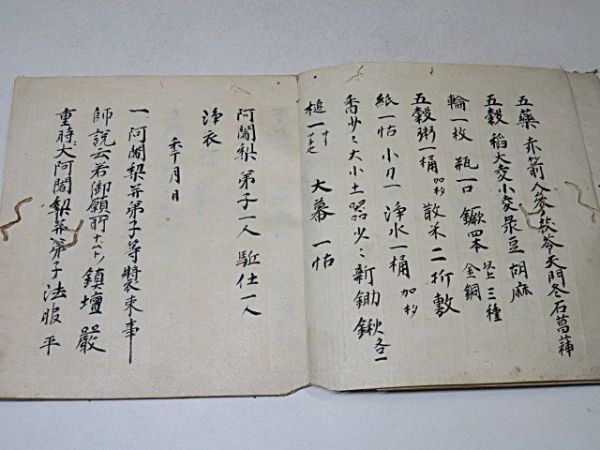 五藥 赤箭人参茯苓天門冬石菖蒲
五穀 稻大麦小麦菉豆胡麻
輪一枚 瓶一口 鐝四本 以上三種金銅
五穀粥一桶加杓 散米二折敷
紙一帖 小刀一 浄水一桶 加杓
香少々 大小土器少々 新鋤鍬各一
槌一 大幕一帖
阿闍梨 弟子一人 駈仕一人
浄衣
年月日
一 阿闍梨并弟子等裝束事
師説云若御願所 鎮壇嚴
重時大阿闍梨并弟子法服平